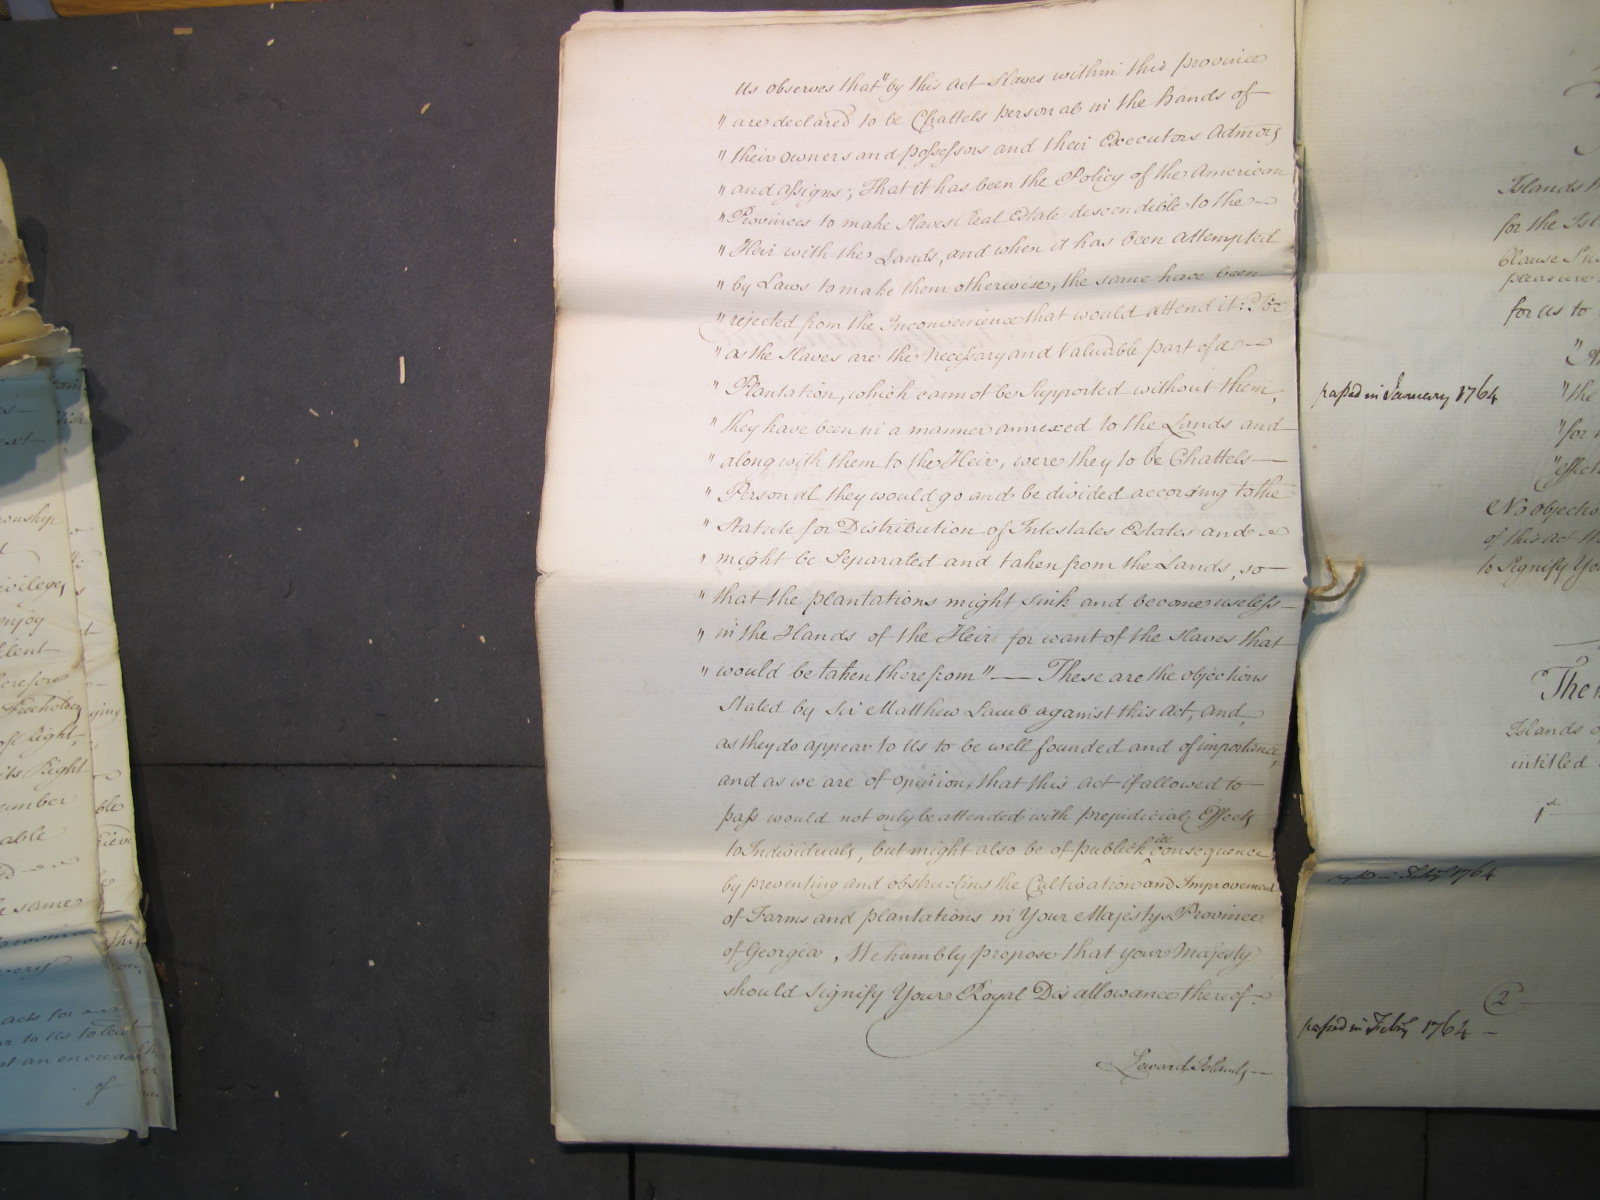 Us observes that "by this Act Slaves within this Province
" are declared to be Chattels personal in the hands of
" their owners and possessors and their Executors Admors
" and assigns; That it has been the Policy of the American
" Provinces to make Slaves Real Estate descendible to the
" Heir with the Lands, and when it has been attempted
" by Laws to make them otherwise, the same have been
" rejected from the Inconvenience that would attend it: For
" as the Slaves are the Necessary and Valuable part of a
" Plantation, which cannot be Supported without them,
" they have been in a manner annexed to the Lands and
" along with them to the Heir, were they to be Chattels
" Personal they would go and be divided according to the
" Statute for Distribution of Intestates Estates and
" might be Separated and taken from the Lands, so
" that the plantations might sink and become useless
" in the Hands of the Heir for want of the Slaves that
" would be taken therefrom" — These are the objections
Stated by Sir Matthew Lamb against this Act, and,
as they do appear to Us to be well founded and of importance,
and as we are of opinion, that this Act if allowed to
pass would not only be attended with prejudicial Effects
to Individuals, but might also be of publick ill consequence,
by preventing and obstructing the Cultivation and Improvement
of Farms and plantations in Your Majestys Province
of Georgia, We humbly propose that your Majesty
should signify Your Royal Disallowance thereof.
Leward Islands
Islands
for the
Clause
pleasure
for Us to
passed in January 1764
" the
" for
No objection
of this Act
to Signify You
The
Islands
intitled
1st
1764
2
passed in Febry 1764
ivilege,
enjoy
Freeholders
Right,
its Right
able
e same
acts for
or to Us to
an encrease
of